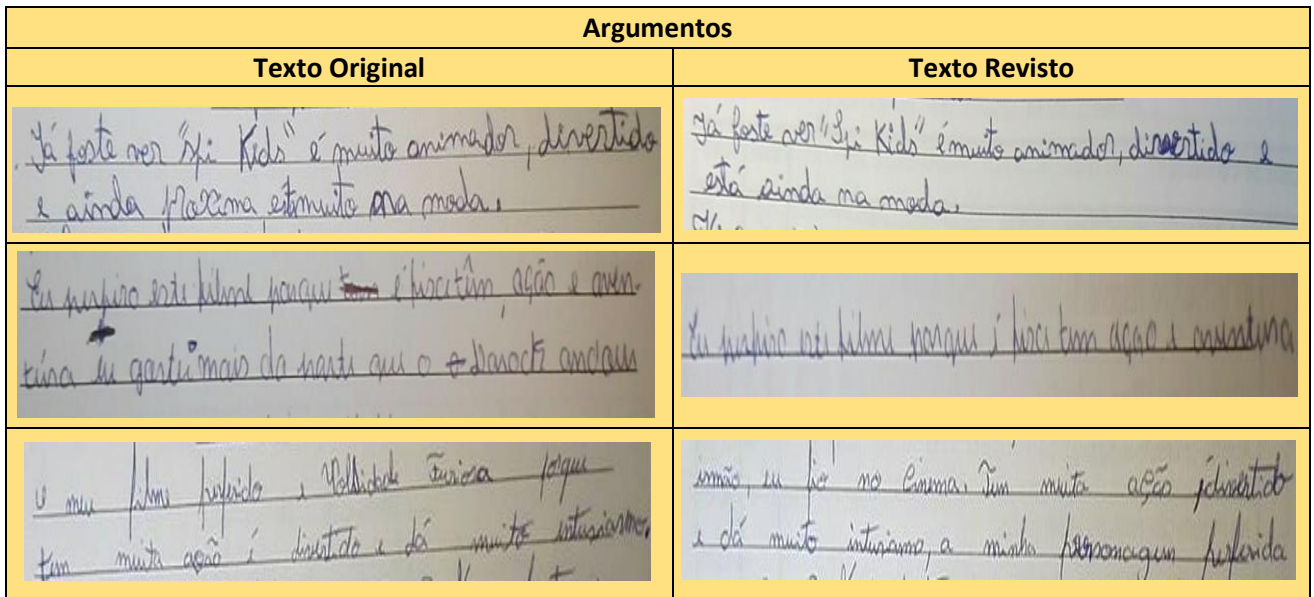 Argumentos
Texto Original
Texto Revisto
Já foste ver "Spi Kids" é muito animador, divertido
e ainda muito na moda.
Já foste ver "Spi Kids" é muito animador, divertido e
está ainda na moda.
Eu porque é tim ação e aven-
túra Eu gostei mais da parte que o andava
Eu porque é tem ação e aventura
O meu filme preferido e Velosidade Furiosa porque
tem muita ação é divertido e dá muito intusiasmo.
irmão, eu no Cinema. Tem muita ação é divertido
e dá muito intusiamo, a minha personagem preferida